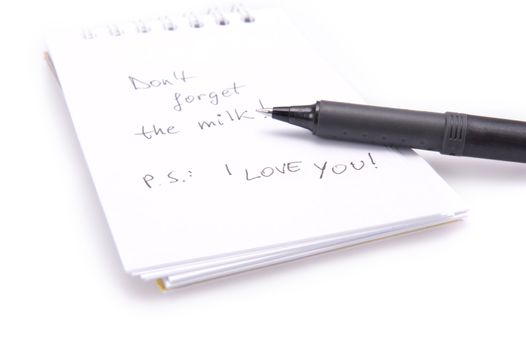 Don't
forget
the milk!
P.S.: I LOVE YOU!